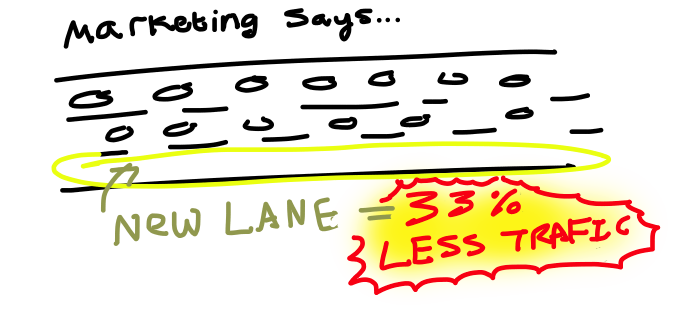 Marketing Says...
NEW LANE = 33%
LESS TRAFIC